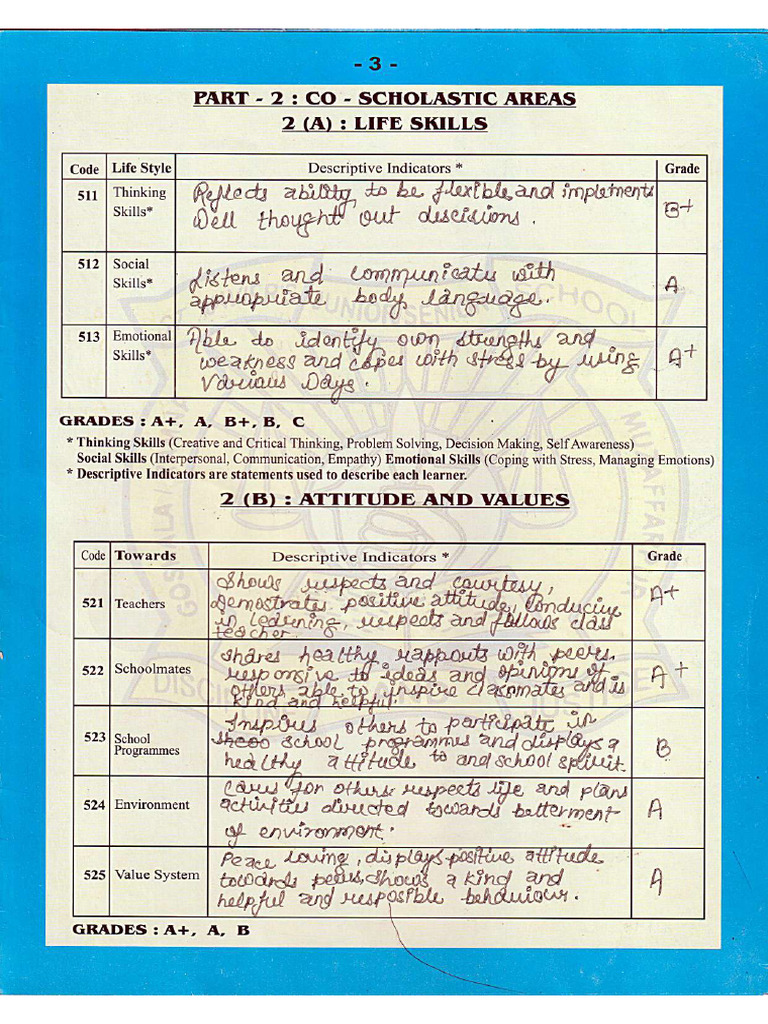 - 3 -
PART - 2 : CO - SCHOLASTIC AREAS
2 (A) : LIFE SKILLS
Code Life Style Descriptive Indicators * Grade
511 Thinking Skills* Reflects ability to be flexible and implements B+
Well thought out discisions.
512 Social Skills* Listens and communicates with A
appropriate body language.
513 Emotional Skills* Able to identify own strengths and A+
weakness and copes with stress by using
Various Days.
GRADES : A+, A, B+, B, C
* Thinking Skills (Creative and Critical Thinking, Problem Solving, Decision Making, Self Awareness)
Social Skills (Interpersonal, Communication, Empathy) Emotional Skills (Coping with Stress, Managing Emotions)
* Descriptive Indicators are statements used to describe each learner.
2 (B) : ATTITUDE AND VALUES
Code Towards Descriptive Indicators * Grade
521 Teachers Shows respects and courtesy, A+
Demostrates positive attitude, Conducive
in learning, respects and follows class
teacher.
522 Schoolmates Shares healthy rappouts with peers. A+
responsive to ideas and opinions of
others able to inspire classmates and is
kind and helpful.
523 School Programmes Inspires others to participate in B
school programmes and displays a
healthy attitude to and school spiurit.
524 Environment Cares for others, respects life and plans A
activities directed towards betterment
of environment.
525 Value System Peace loving, displays positive attitude A
towards peers, shows a kind and
helpful and resposible behaviour.
GRADES : A+, A, B